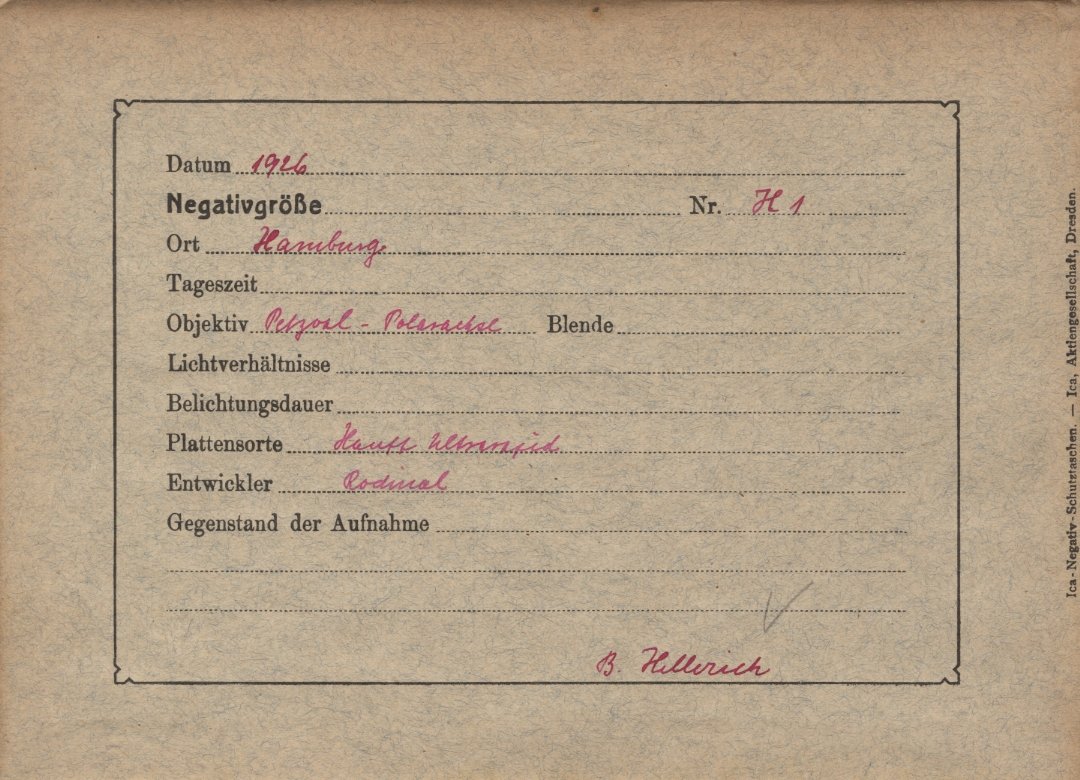 Datum 1926
Negativgröße Nr. H 1
Ort Hamburg
Tageszeit
Objektiv Petzval - Polarachse Blende
Lichtverhältnisse
Belichtungsdauer
Plattensorte Hauff Ultrarapid
Entwickler Rodinal
Gegenstand der Aufnahme
B. Hellerich
Ica-Negativ-Schutztaschen. — Ica, Aktiengesellschaft, Dresden.